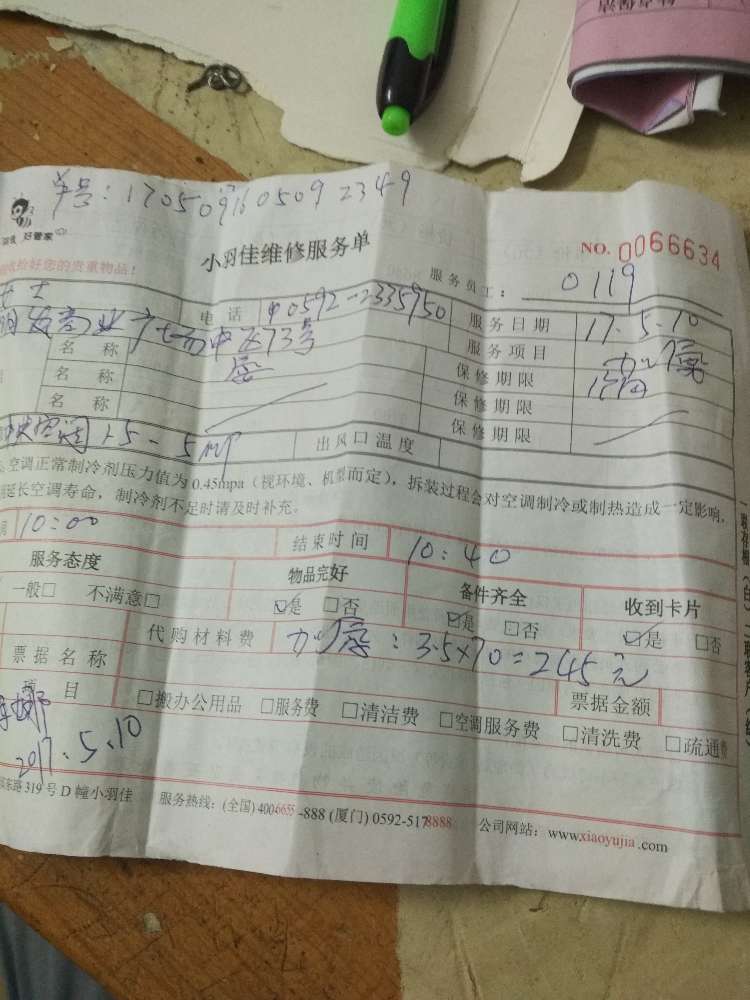 单号:170509160509 2349
好管家
小羽佳维修服务单
NO. 0066634
收拾好您的贵重物品!
服务员工: 0119
女士 电话 0592-2335950 服务日期 17.5.10
商业广场中区73号 服务项目 加氟
名称 保修期限
名称 保修期限
名称 保修期限
中央空调 1.5-5MP 出风口温度
空调正常制冷剂压力值为0.45mpa(视环境、机型而定),拆装过程会对空调制冷或制热造成一定影响,
延长空调寿命,制冷剂不足时请及时补充。
10:00 结束时间 10:40
服务态度 物品完好 备件齐全 收到卡片
一般□ 不满意□ ☑是 □否 ☑是 □否 ☑是 □否
代购材料费 加氟:3.5×70=245元
票据名称 票据金额
项目 □搬办公用品 □服务费 □清洁费 □空调服务费 □清洗费 □疏通费
2017.5.10
东路319号D幢小羽佳 服务热线:(全国)4006655-888 (厦门)0592-5178888 公司网站:www.xiaoyujia.com